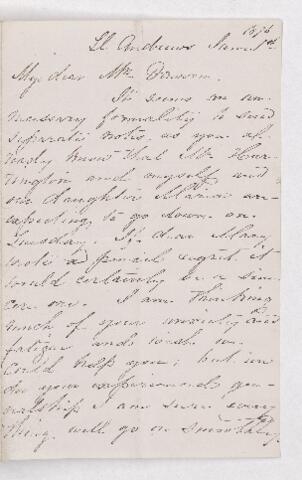 1876
St. Andrews June 1st
My dear Mr. Dawson.
It seems an un-
necessary formality to send
separate notes as you al-
ready know that Mr. Hun-
tington and myself and
our daughter Marian are
expecting to go down on
Tuesday. If dear Mary
sent a formal regret it
would certainly be a sin-
cere one. I am thinking
much of your anxiety and
fatigue and wish we
could help you; but un-
der your experienced gen-
eralship I am sure every
thing will go on smoothly.